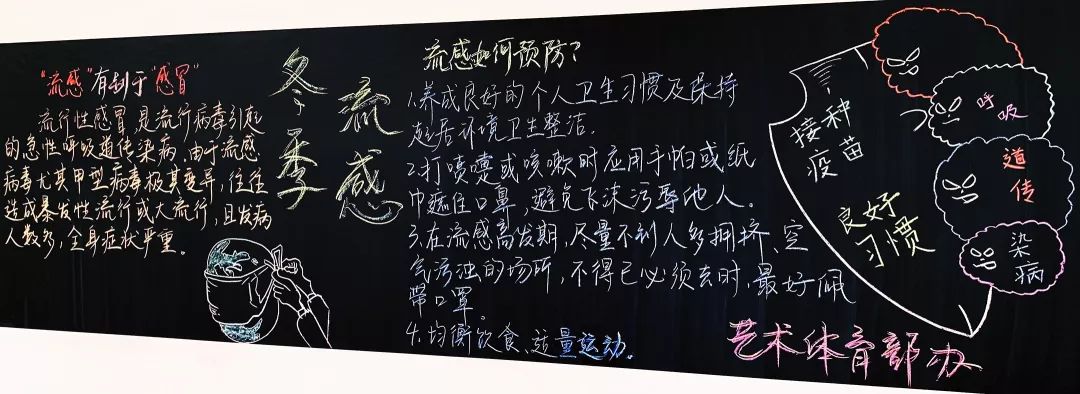 “流感”有别于“感冒”
流行性感冒是流行病毒引起
的急性呼吸道传染病,由于流感
病毒尤其甲型病毒极其变异,往往
造成暴发性流行或大流行,且发病
人数多,全身症状严重。
冬季
流感
流感如何预防?
1.养成良好的个人卫生习惯及保持
起居环境卫生整洁.
2.打喷嚏或咳嗽时应用手帕或纸
巾遮住口鼻,避免飞沫污染他人。
3.在流感高发期,尽量不到人多拥挤、空
气污浊的场所,不得已必须去时,最好佩
带口罩。
4.均衡饮食、适量运动。
接种
疫苗
良好
习惯
呼吸
道
传
染
病
艺术体育部办